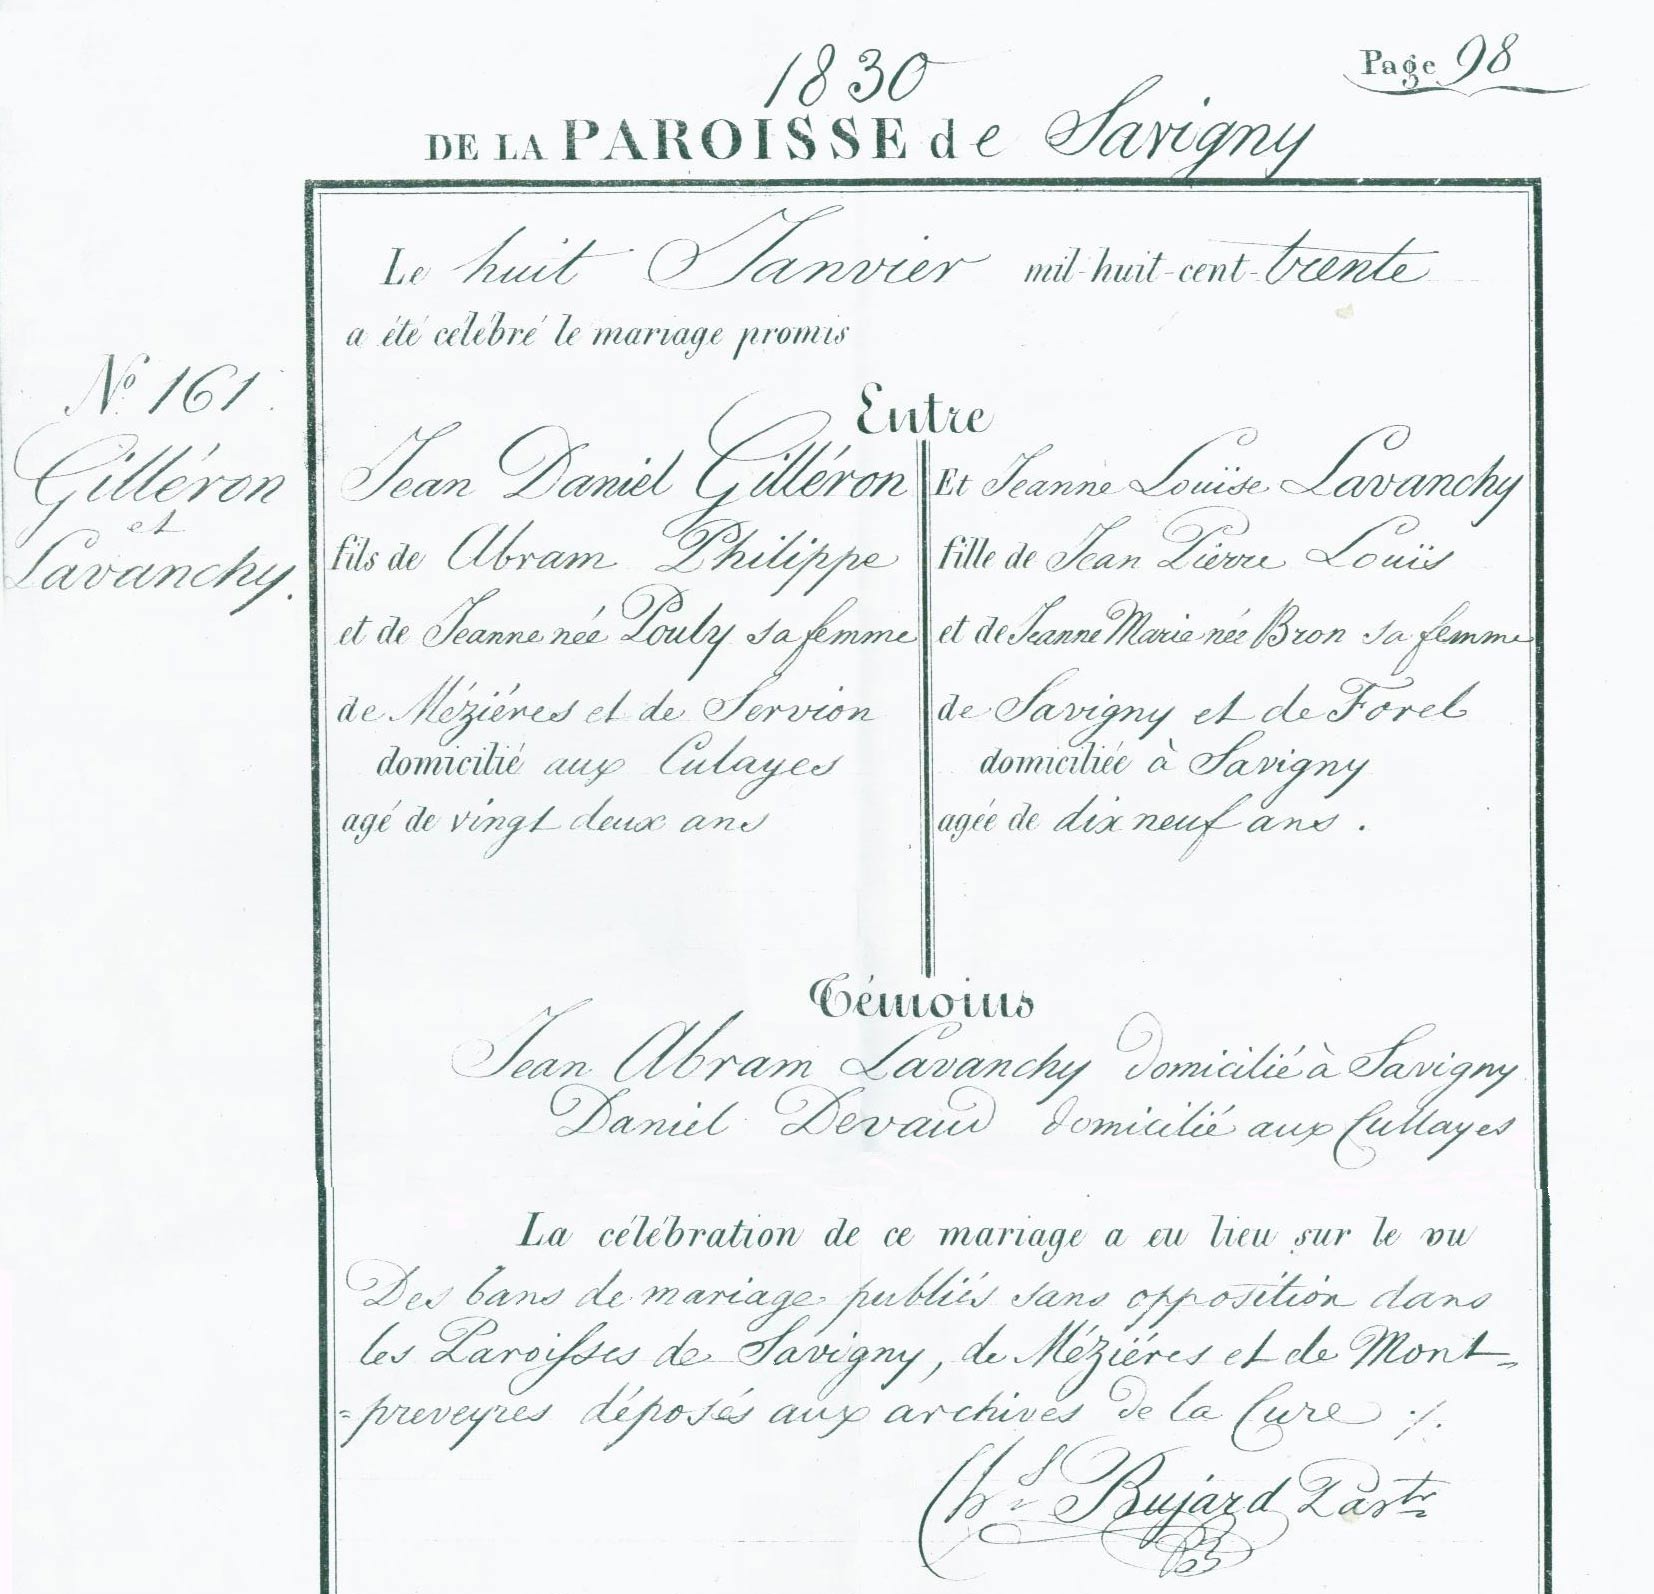 Page 98
1830
DE LA PAROISSE de Savigny
Le huit Janvier mil-huit-cent-trente
a été célébré le mariage promis
Nº 161.
Gilléron
et
Lavanchy.
Entre
Jean Daniel Gilléron
fils de Abram Philippe
et de Jeanne née Pouly sa femme
de Méziéres et de Servion
domicilié aux Culayes
agé de vingt deux ans
Et Jeanne Louïse Lavanchy
fille de Jean Pierre Louïs
et de Jeanne Marie née Bron sa femme
de Savigny et de Forel
domiciliée à Savigny
agée de dix neuf ans.
Témoins
Jean Abram Lavanchy domicilié à Savigny
Daniel Devaud domicilié aux Cullayes
La célébration de ce mariage a eu lieu sur le vu
Des bans de mariage publiés sans opposition dans
les Paroisses de Savigny, de Méziéres et de Mont=
=preveyres déposés aux archives de la Cure ./.
Chs Bujard Pastr